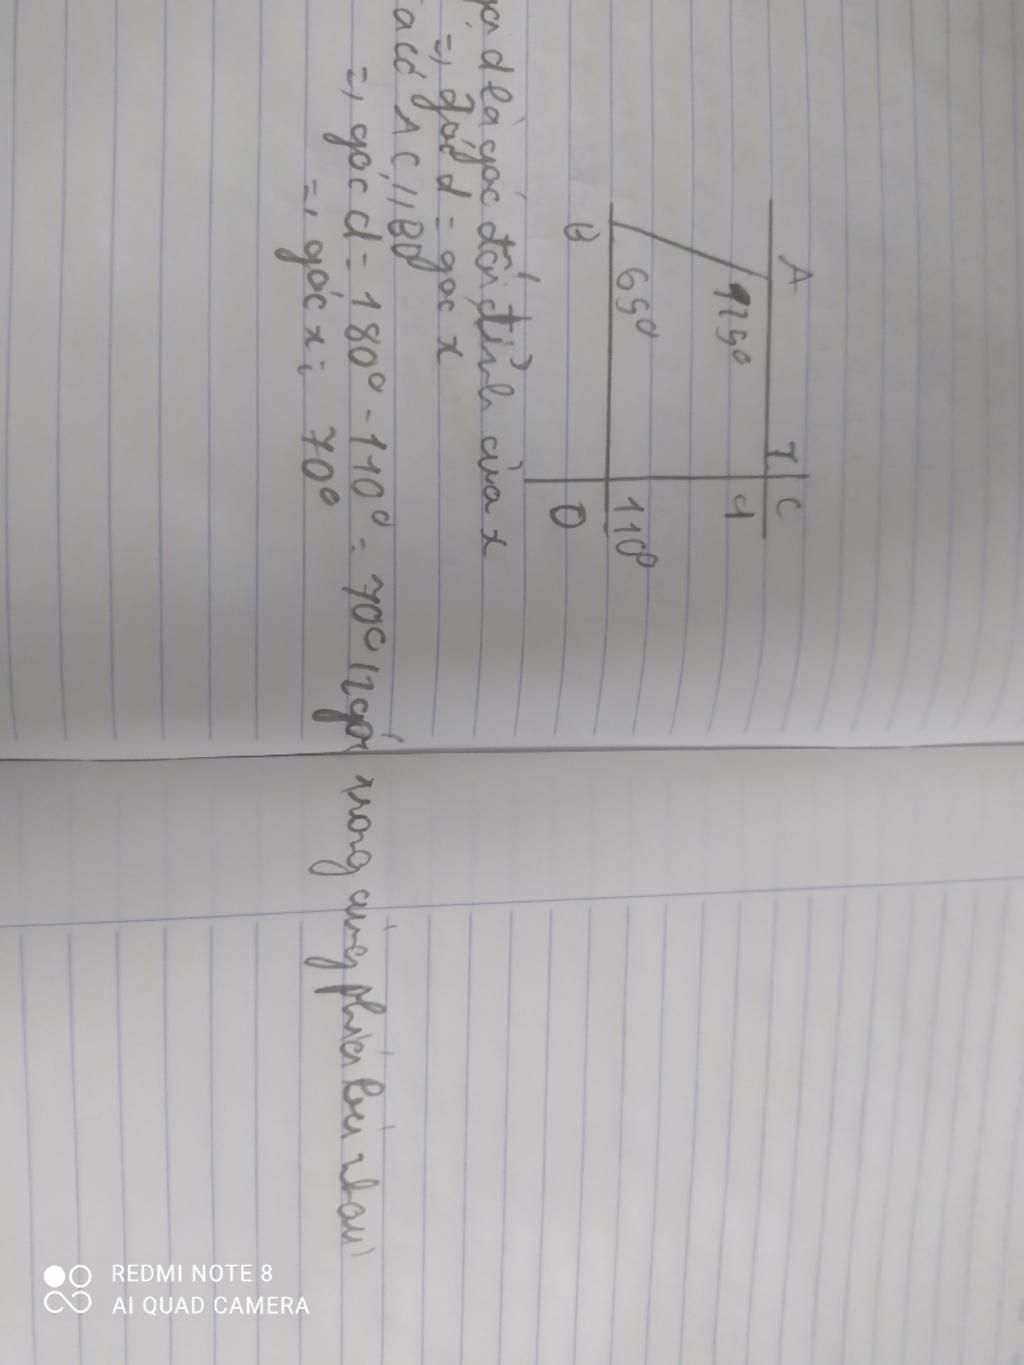 A
115°
I
C
d
65°
110°
B
D
d là góc đối đỉnh của x
=, góc d = góc x
a có AC // BD
=, góc d = 180° - 110° = 70° (2 góc trong cùng phía bù nhau)
=, góc x = 70°
REDMI NOTE 8
AI QUAD CAMERA